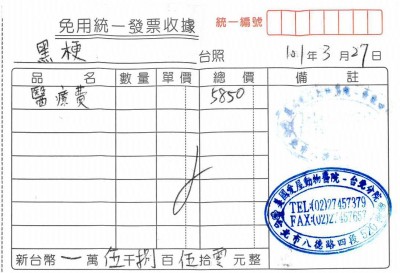 免用統一發票收據
統一編號
黑梗 台照 101年3月27日
品名 數量 單價 總價 備註
醫療費 5850
英國皇屋動物醫院-台北分院
TEL:(02)27457379
FAX:(02)27457657
新台幣一萬伍千捌百伍拾零元整